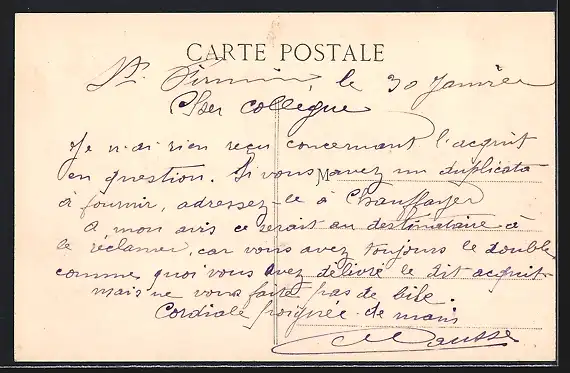 CARTE POSTALE
St. Firmin, le 30 Janvier
Cher collègue
Je n'ai rien reçu concernant l'acquit
en question. Si vous avez un duplicata
M
à fournir, adressez-le à Chauffayer
à mon avis ce serait au destinataire à
le réclamer, car vous avez toujours le double
comme quoi vous avez délivré le dit acquit
mais ne vous faite pas de bile.
Cordiale poignée de main